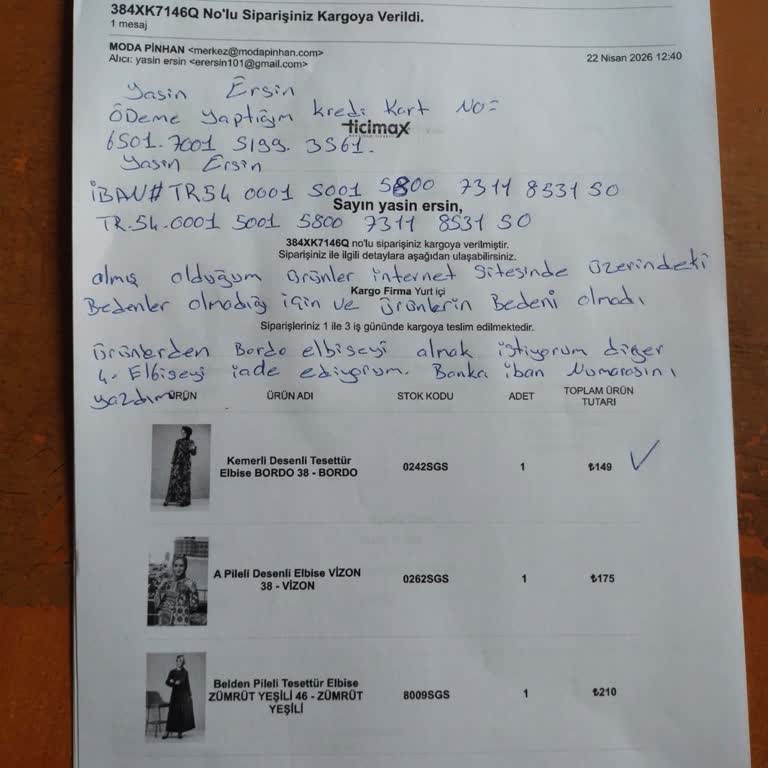 384XK7146Q No'lu Siparişiniz Kargoya Verildi.
1 mesaj
MODA PİNHAN <merkez@modapinhan.com>
Alıcı: yasin ersin <erersin101@gmail.com>
22 Nisan 2026 12:40
Yasin Ersin
ÖDeme yaptığım kredi Kart NO=
ticimax
6501.7001 5199. 3561.
Yasin Ersin
iBAN# TR54 0001 5001 5800 7311 8531 50
Sayın yasin ersin,
TR.54.0001 5001 5800 7311 8531 50
384XK7146Q no'lu siparişiniz kargoya verilmiştir.
Siparişiniz ile ilgili detaylara aşağıdan ulaşabilirsiniz.
almış olduğum ürünler internet Sitesinde üzerindeki
Kargo Firma Yurt içi
Bedenler olmadığ için ve ürünlerin Bedeni olmadı
Siparişleriniz 1 ile 3 iş gününde kargoya teslim edilmektedir.
ürünlerden Bordo elbiseyi almak istiyorum diğer
4. Elbiseyi iade ediyorum. Banka iban Numarasını
yazdım
ÜRÜN ÜRÜN ADI STOK KODU ADET TOPLAM ÜRÜN
TUTARI
Kemerli Desenli Tesettür
Elbise BORDO 38 - BORDO
0242SGS 1 ₺149 ✓
A Pileli Desenli Elbise VİZON
38 - VİZON
0262SGS 1 ₺175
Belden Pileli Tesettür Elbise
ZÜMRÜT YEŞİLİ 46 - ZÜMRÜT
YEŞİLİ
8009SGS 1 ₺210